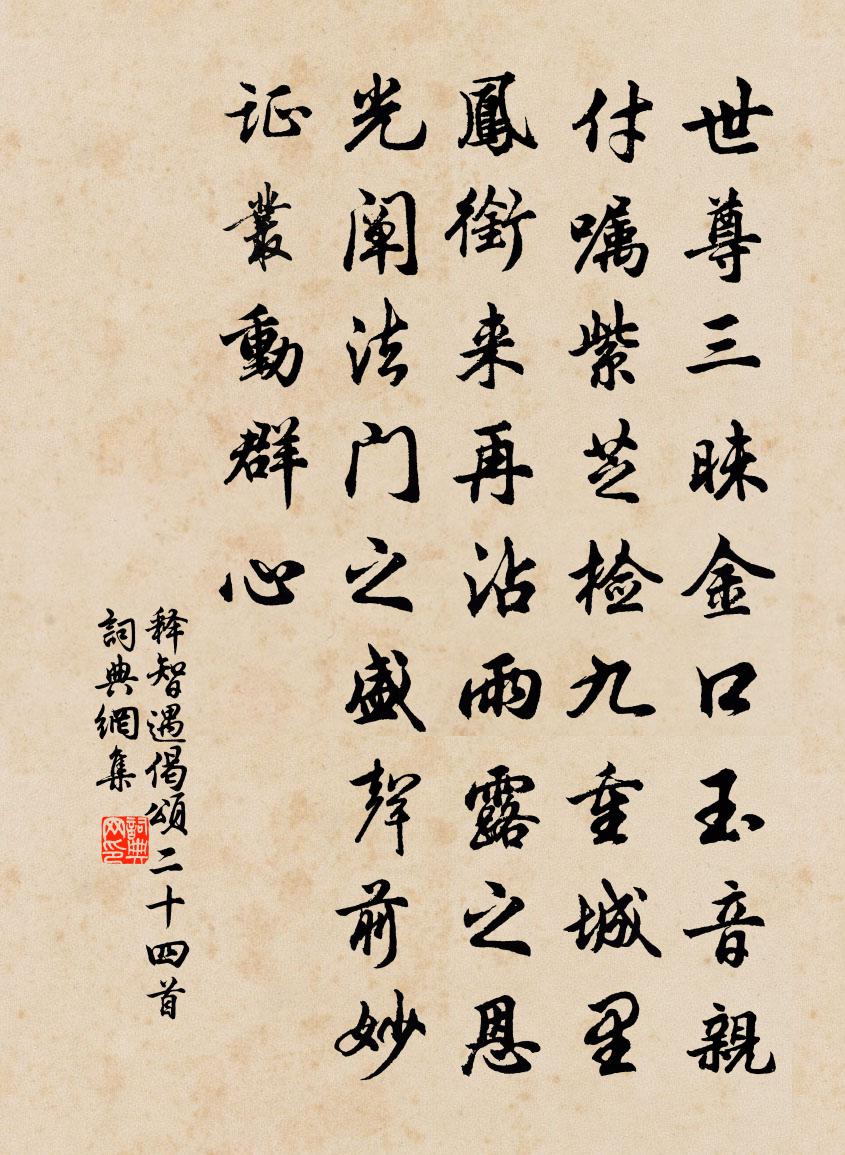 世尊三昧金口玉音親
付嘱紫芝检九重城里
鳳銜来再沾雨露之恩
光阐法门之盛聲前妙
证叢動群心
释智遇偈頌二十四首
詞典網集
詞典网印